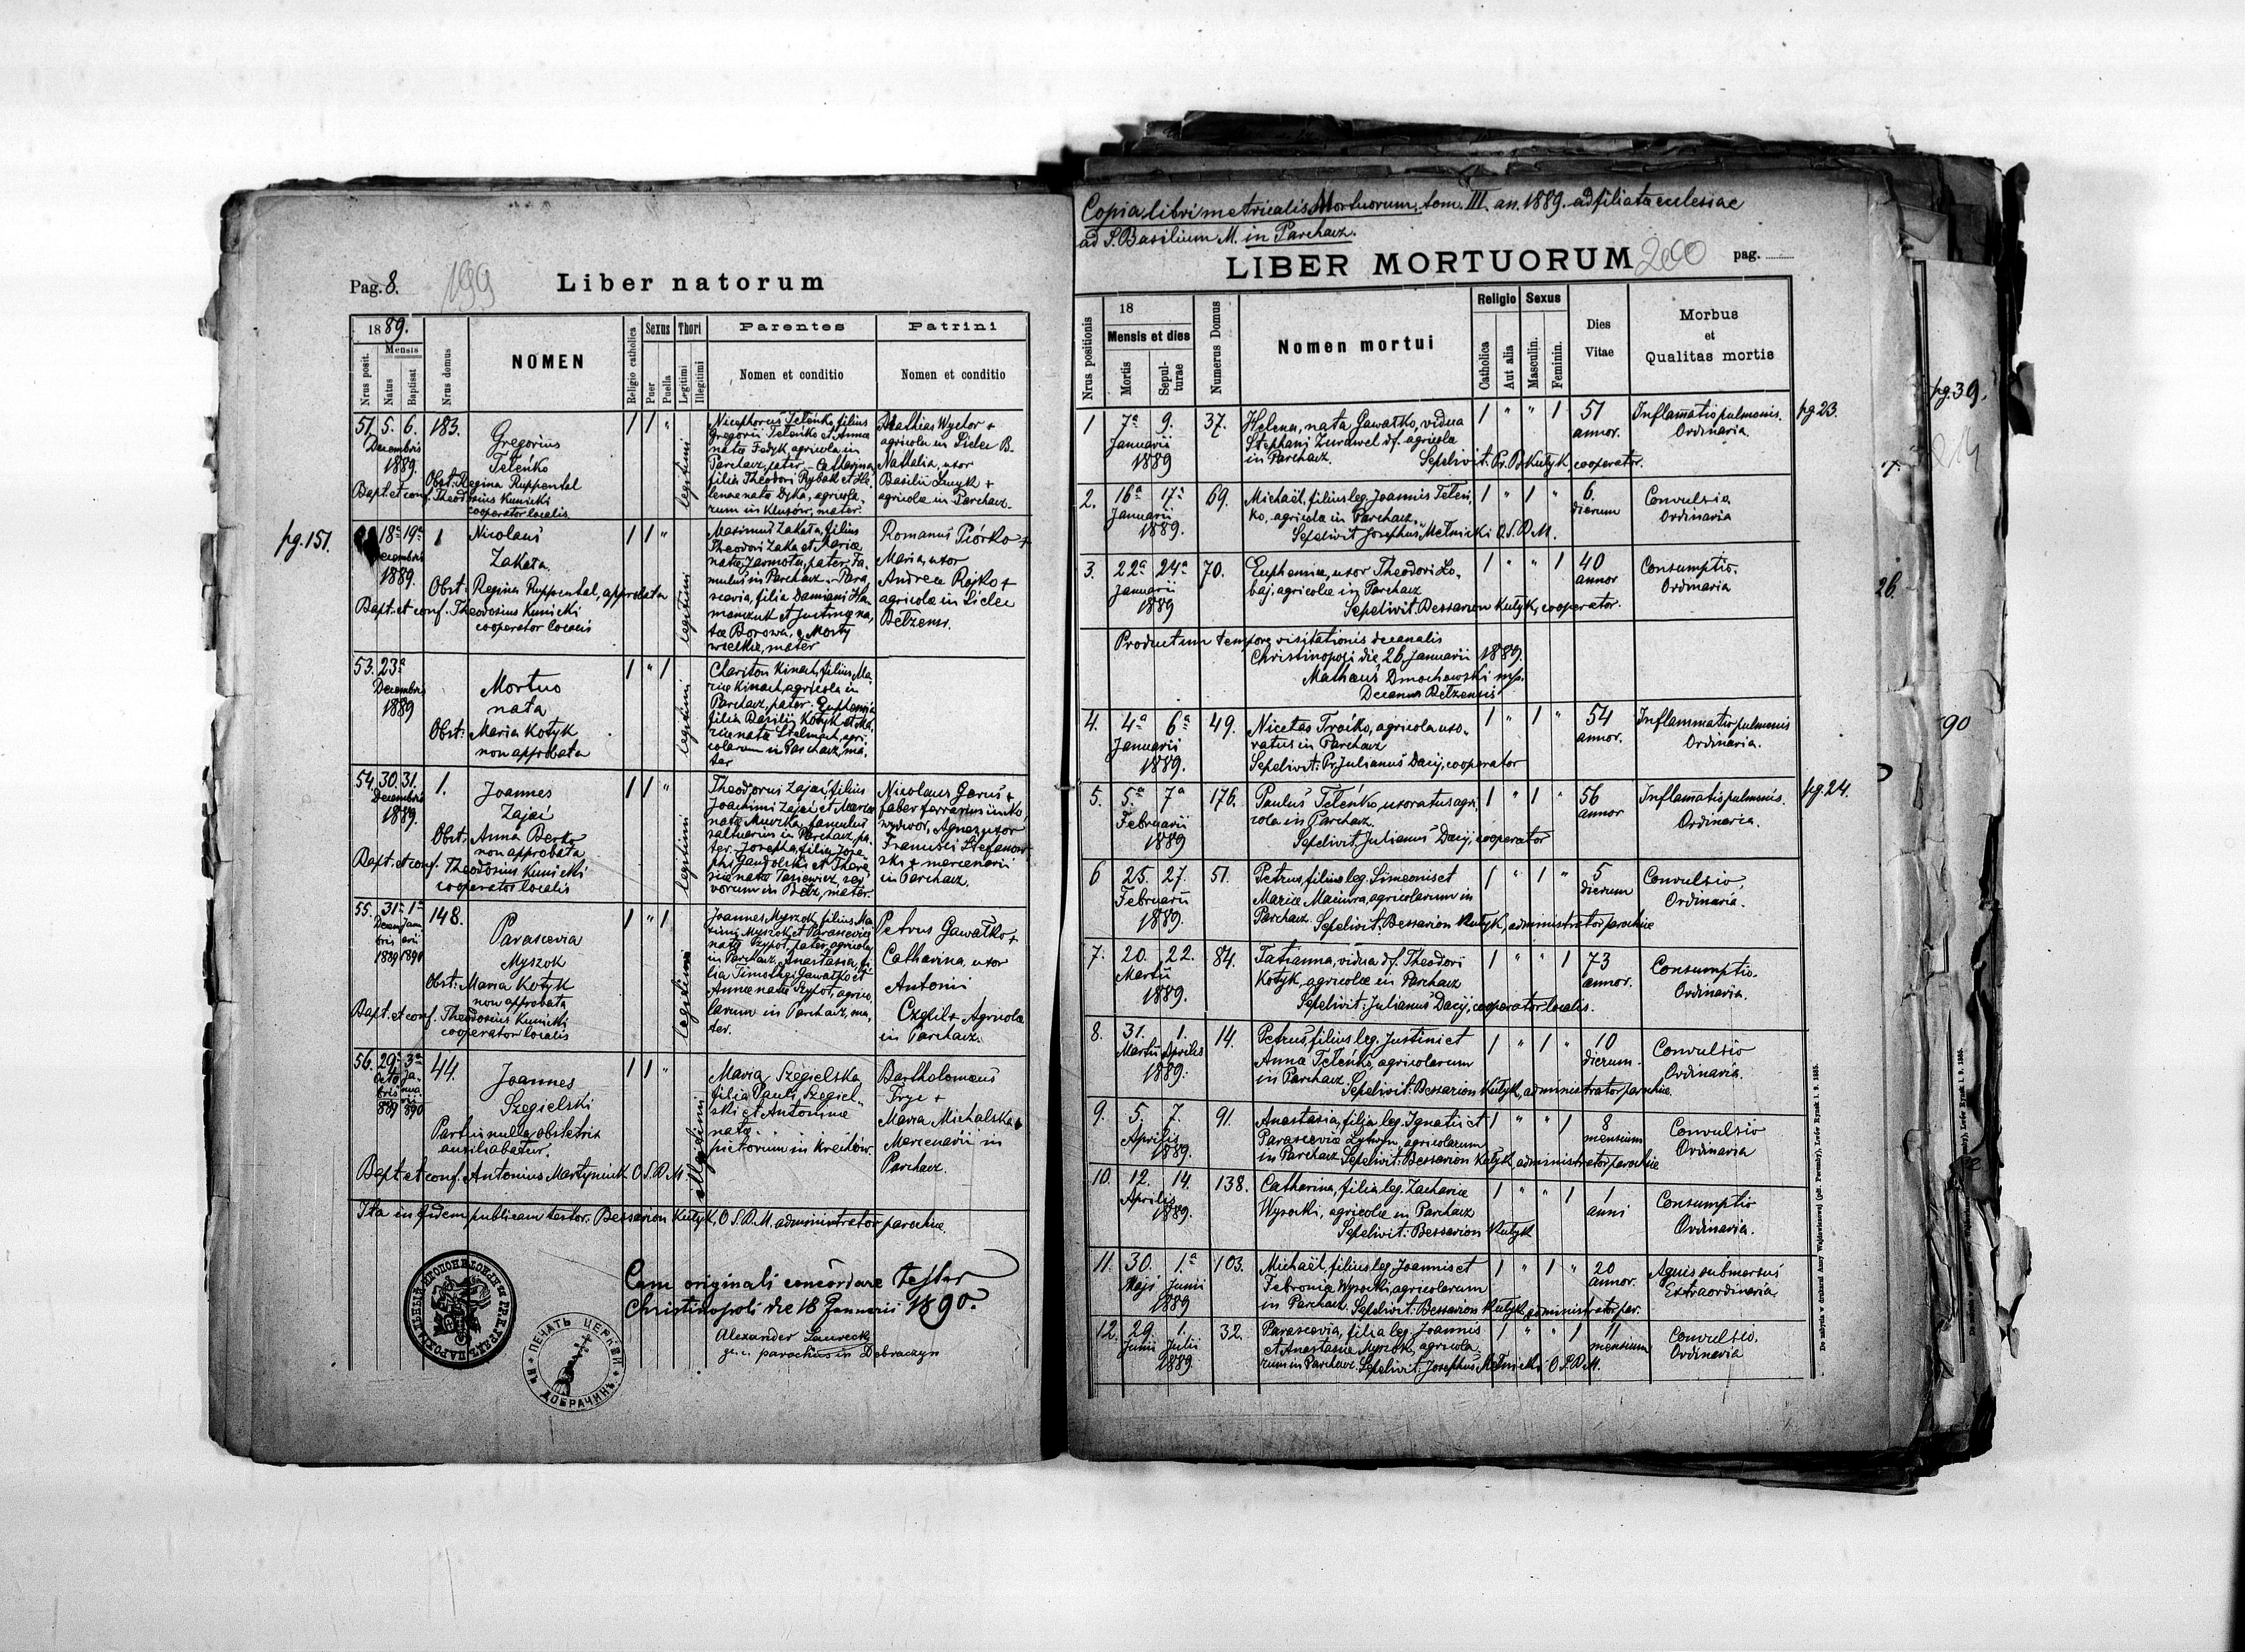 Pag. 8.
199
Liber natorum
1889.
Mensis
Nrus posit.
Natus
Baptisat
Nrus domus
NOMEN
Religio catholica
Sexus
Puer
Puella
Thori
Legitimi
Illegitimi
Parentes
Nomen et conditio
Patrini
Nomen et conditio
51. 5. 6. 183.
Decembris
1889.
Gregorius
Teleńko
Obst: Regina Ruppental
Bapt. et conf. Theodosius Kunicki
cooperator localis
1 1 "
legitimi
Nicephorus Teleńko, filius
Gregorii Teleńko et Annae
natae Fedyk, agricola in
Parchacz, pater. Catharina,
filia Theodori Rybak et He
lenae natae Dyka, agricola
rum in Klusów, mater.
Mathias Wyctor +
agricola in Sielec B.
Nathalia, uxor
Basilii Smyk +
agricolae in Parchacz.
pg. 151.
18ª 19ª 1
Decembris
1889.
Nicolaus
Zakała.
Obst: Regina Ruppental, approbata
Bapt. et conf. Theodosius Kunicki
cooperator localis
1 1 "
legitimi
Maximus Zakała, filius
Theodori Zakała et Mariae
natae Jarmota, pater, Fa
mulus in Parchacz. Para
scevia, filia Damiani Ha
manczuk et Justinae na
tae Borowa, e Mosty
wielkie, mater
Romanus Piórko +
Maria, uxor
Andreae Rojko +
agricolae in Sielec
Bełzensi.
53. 23ª
Decembris
1889
Mortuo
nata
Obst: Maria Kotyk
non approbata
1 " 1
legitimi
Chariton Kinach, filius Ma
riae Kinach, agricola in
Parchacz, pater. Euphemia
filia Basilii Kotyk et Ma
riae natae Stelmach, agri
colarum in Parchacz, ma
ter
54. 30. 31. 1.
Decembris
1889.
Joannes
Zajać
Obst: Anna Berko
non approbata
Bapt. et conf. Theodosius Kunicki
cooperator localis
1 1 "
legitimi
Theodorus Zajać, filius
Joachimi Zajać et Mariae
natae Muczka, famulus
saltuarius in Parchacz, pa
ter. Josepha, filia Jose
phi Gandolski et There
siae natae Tasiewicz, ser
vorum in Bełz, mater.
Nicolaus Garus +
faber ferrarius
Agnes, uxor
Francisci Stefanow
ski + mercenarii
in Parchacz.
55. 31ª 1ª 148.
Decem Janu
bris arii
1889 1890
Parascevia
Myszok
Obst: Maria Kotyk
non approbata
Bapt. et conf. Theodosius Kunicki
cooperator localis
1 " 1
legitimi
Joannes Myszok, filius Ma
ximi Myszok et Parasceviae
natae Szypot, pater, agricola
in Parchacz. Anastasia, fi
lia Timothei Gawałko et
Annae natae Szypot, agrico
larum in Parchacz, ma
ter.
Petrus Gawałko +
Catharina, uxor
Antonii
Czehil + Agricolae
in Parchacz.
56. 29ª 3ª 44.
Octo Ja
bris nua
rii
889 890
Joannes
Szegielski
Partui nulla obstetrix
auxiliabatur.
Bapt. et conf. Antonius Martyniuk O.S.B.M.
1 1 "
illegitimi
Maria Szegielska,
filia Pauli Szegiel
ski et Antoninae
natae
pictorum in Krechów.
Bartholomeus
Fryc +
Maria Michalska
Mercenarii in
Parchacz.
Ita in fidem publicam testor. Bessarion Kułyk, O.S.B.M. administrator parochiae.
Cum originali concordare testor
Christinopoli die 18 Januarii 1890.
Alexander Laurecki
gr. c. parochus in Dobraczyn
ПЕЧАТЬ ЦЕРКВИ
ДОБРАЧИНѢ
Copia libri metricalis Mortuorum, tom. III. an. 1889. ad filiata ecclesiae
ad S. Basilium M. in Parchacz.
LIBER MORTUORUM
200
pag.
Nrus positionis
18
Mensis et dies
Mortis
Sepul-
turae
Numerus Domus
Nomen mortui
Religio
Catholica
Aut alia
Sexus
Masculin.
Feminin.
Dies
Vitae
Morbus
et
Qualitas mortis
1 7ª 9. 37.
Januarii
1889
Helena, nata Gawałko, vidua
Stephani Zurawel df. agricolae
in Parchacz.
Sepelivit: Pr. B. Kułyk, cooperator.
1 " " 1
51
annor.
Inflamatio pulmonis.
Ordinaria.
pg. 23.
2. 16ª 17ª 69.
Januarii
1889.
Michaël, filius leg. Joannis Teleń
ko, agricola in Parchacz.
Sepelivit Josephus Melnicki O.S.B.M.
1 " 1 "
6.
dierum
Convulsio
Ordinaria
3. 22ª 24ª 70.
Januarii
1889
Euphemia, uxor Theodori Lo
baj, agricolae in Parchacz
Sepelivit. Bessarion Kułyk, cooperator.
1 " " 1
40
annor
Consumptio.
Ordinaria
Productum tempore visitationis decanalis
Christinopoli die 26 Januarii 1889.
Matheus Dmochowski mp.
Decanus Bełzensis
4. 4ª 6ª 49.
Januarii
1889.
Nicetas Traćko, agricola uxo
ratus in Parchacz
Sepelivit: Pr. Julianus Dacij, cooperator
1 " 1 "
54
annor.
Inflammatio pulmonis
Ordinaria.
5. 5ª 7ª 176.
Februarii
1889
Paulus Teleńko, uxoratus agri
cola in Parchacz.
Sepelivit Julianus Dacij, cooperator
1 " 1 "
56
annor
Inflamatio pulmonis.
Ordinaria.
pg. 24.
6 25. 27. 51.
Februarii
1889.
Petrus, filius leg. Simeonis et
Mariae Maciura, agricolarum in
Parchacz. Sepelivit. Bessarion Kułyk, administrator parochiae
1 " 1 "
5
dierum
Convulsio,
Ordinaria.
7. 20. 22. 84.
Martii
1889.
Tatianna, vidua df. Theodori
Kotyk, agricolae in Parchacz
Sepelivit: Julianus Dacij, cooperator localis.
1 " " 1
73
annor.
Consumptio.
Ordinaria.
8. 31. 1. 14.
Martii Aprilis
1889.
Petrus, filius leg. Justini et
Anna Teleńko, agricolarum
in Parchacz. Sepelivit: Bessarion Kułyk, administrator parochiae.
1 " 1 "
10
dierum.
Convulsio
Ordinaria.
9. 5. 7. 91.
Aprilis
1889.
Anastasia, filia leg. Ignatii et
Parascevia Lytwyn, agricolarum
in Parchacz. Sepelivit: Bessarion Kułyk, administrator parochiae
1 " " 1
8
mensium
Convulsio
Ordinaria
10. 12. 14. 138.
Aprilis
1889.
Catharina, filia leg. Zachariae
Wysocki, agricolae in Parchacz
Sepelivit: Bessarion Kułyk
1 " " 1
1
anni
Consumptio
Ordinaria.
11. 30. 1ª 103.
Maji Junii
1889
Michaël, filius leg. Joannis et
Febronia Wysocki, agricolarum
in Parchacz. Sepelivit: Bessarion Kułyk, administrator par.
1 " 1 "
20
annor.
Aquis submersus
Extraordinaria
12. 29. 1. 32.
Junii Julii
1889
Parascevia, filia leg. Joannis
et Anastasiae Myszok, agricola
rum in Parchacz. Sepelivit: Josephus Melnicki O.S.B.M.
1 " " 1
11
mensium
Convulsio.
Ordinaria
pg. 39.
7.
26.
90